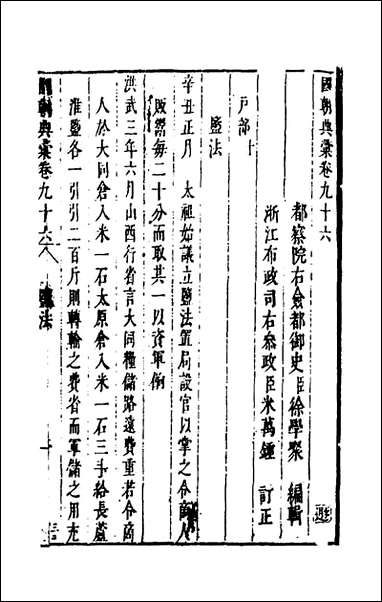 國朝典彙卷九十六
都察院右僉都御史臣徐學聚 編輯
浙江布政司右叅政臣米萬鍾 訂正
戶部十
鹽法
辛丑正月 太祖始議立鹽法置局設官以掌之令商人
販鬻每二十分而取其一以資軍餉
洪武三年六月山西行省言大同糧儲路遠費重若令商
人於大同倉入米一石太原倉入米一石三斗給長蘆
淮鹽各一引引二百斤則轉輸之費省而軍儲之用充
國朝典彙卷九十六 鹽法 一